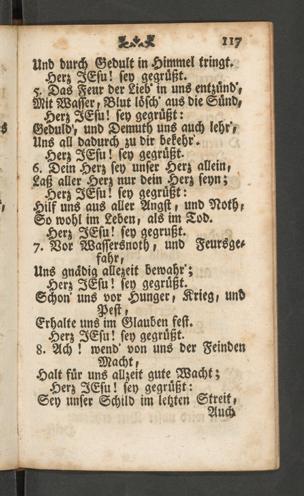 117
Und durch Gedult in Himmel tringt.
Herz JEsu! sey gegrüßt.
5. Das Feur der Lieb' in uns entzünd',
Mit Wasser, Blut lösch' aus die Sünd,
Herz JEsu! sey gegrüßt:
Geduld', und Demuth uns auch lehr',
Uns all dadurch zu dir bekehr'.
Herz JEsu! sey gegrüßt.
6. Dein Herz sey unser Herz allein,
Laß aller Herz nur dein Herz seyn;
Herz JEsu! sey gegrüßt:
Hilf uns aus aller Angst, und Noth,
So wohl im Leben, als im Tod.
Herz JEsu! sey gegrußt.
7. Vor Wassersnoth, und Feursge-
fahr,
Uns gnädig allezeit bewahr';
Herz JEsu! sey gegrüßt:
Schon' uns vor Hunger, Krieg, und
Pest,
Erhalte uns im Glauben fest.
Herz JEsu! sey gegrüßt.
8. Ach! wend' von uns der Feinden
Macht,
Halt für uns allzeit gute Wacht;
Herz JEsu! sey gegrüßt:
Sey unser Schild im letzten Streit,
Auch